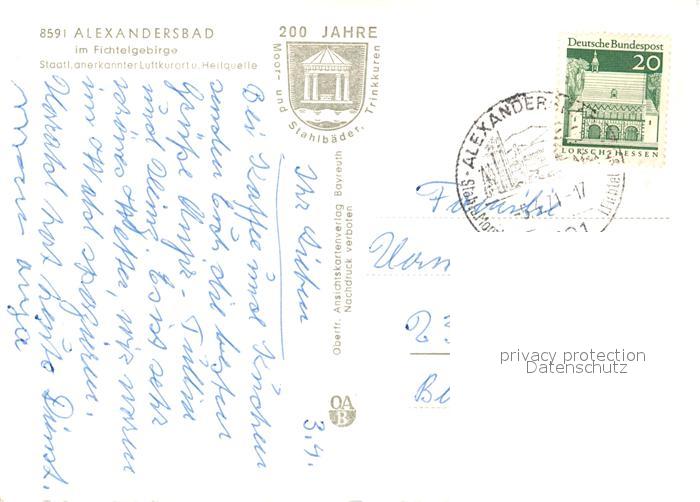 8591 ALEXANDERSBAD
im Fichtelgebirge
Staatl. anerkannter Luftkurort u. Heilquelle
200 JAHRE
Moor- und Stahlbäder, Trinkkuren
Deutsche Bundespost
20
LORSCH/HESSEN
ALEXANDERS
3.4.
Ihr Lieben
Bei Kaffee und Kuchen
senden Euch die besten
Grüße
und Heinz. Es ist sehr
schönes Wetter, wir waren
im Wald spazieren.
Harald hat heute Dienst.
Oberfr. Ansichtskartenverlag Bayreuth
Nachdruck verboten
OA
B
Familie
privacy protection
Datenschutz